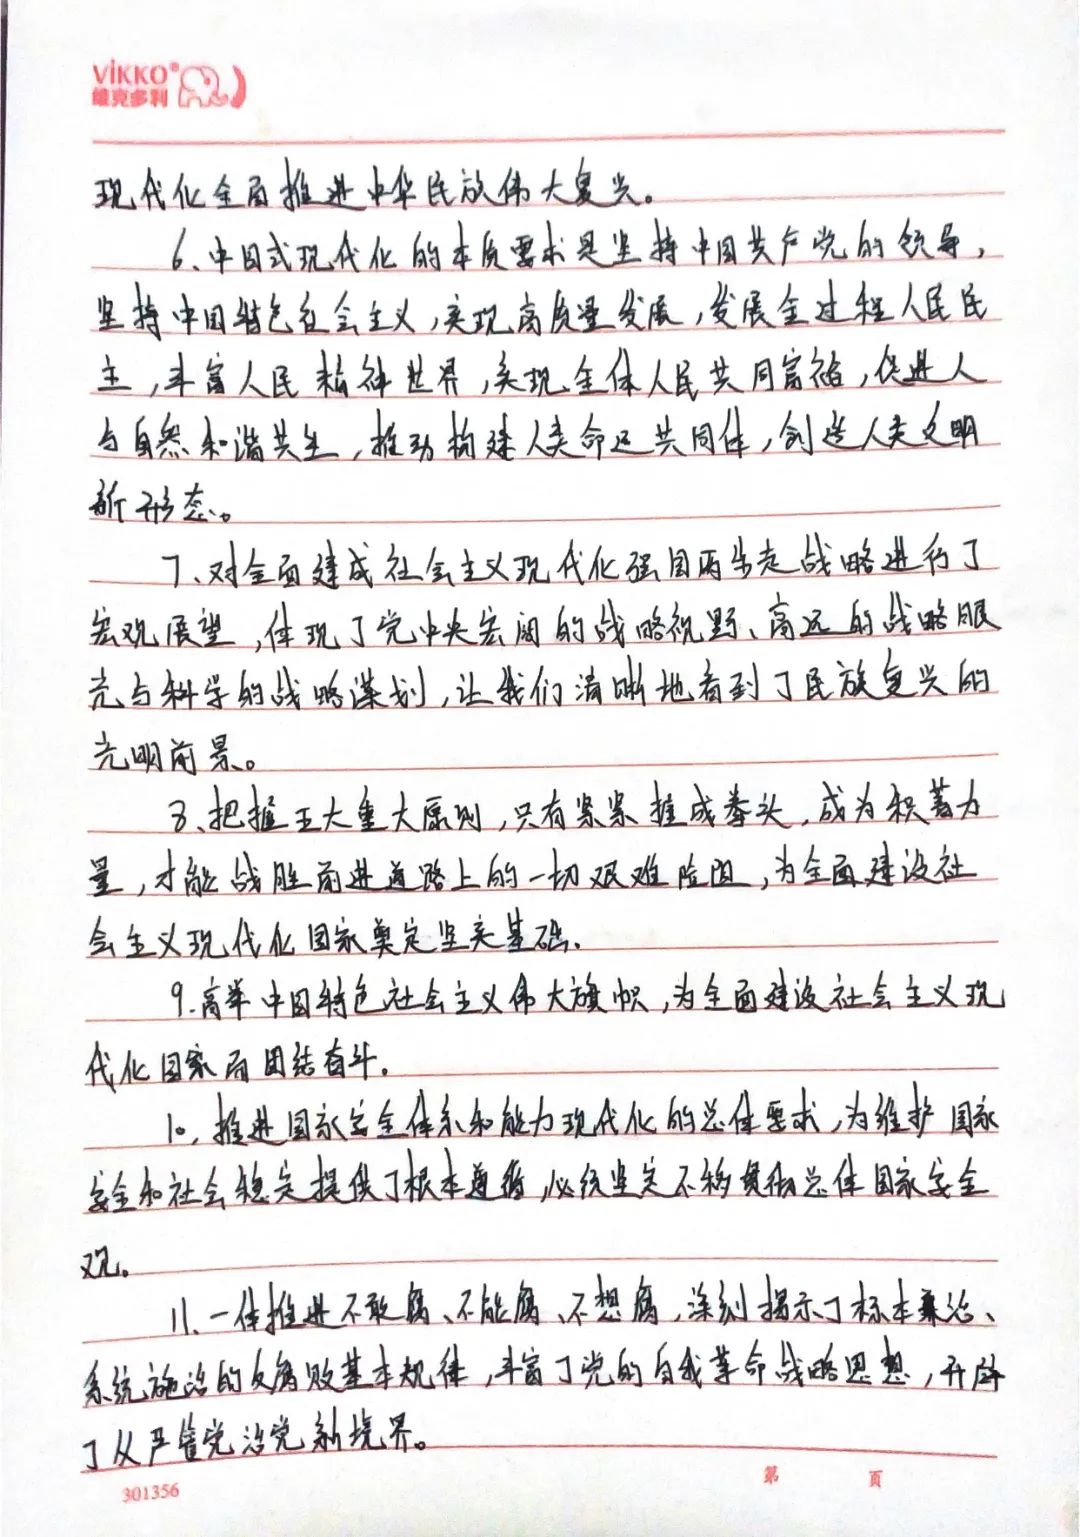 VİKKO®
维克多利
现代化全局推进中华民族伟大复兴。
6、中国式现代化的本质要求是坚持中国共产党的领导，
坚持中国特色社会主义，实现高质量发展，发展全过程人民民
主，丰富人民精神世界，实现全体人民共同富裕，促进人
与自然和谐共生，推动构建人类命运共同体，创造人类文明
新形态。
7、对全面建成社会主义现代化强国两步走战略进行了
宏观展望，体现了党中央宏阔的战略视野、高远的战略眼
光与科学的战略谋划，让我们清晰地看到了民族复兴的
光明前景。
8、把握五大重大原则，只有紧紧握成拳头，成为积蓄力
量，才能战胜前进道路上的一切艰难险阻，为全面建设社
会主义现代化国家奠定坚实基础.
9.高举中国特色社会主义伟大旗帜，为全面建设社会主义现
代化国家而团结奋斗.
10，推进国家安全体系和能力现代化的总体要求，为维护国家
安全和社会稳定提供了根本遵循，必须坚定不移贯彻总体国家安全
观.
11.一体推进不敢腐、不能腐、不想腐，深刻揭示了标本兼治、
系统施治的反腐败基本规律，丰富了党的自我革命战略思想，开辟
了从严管党治党新境界。
301356
第 页